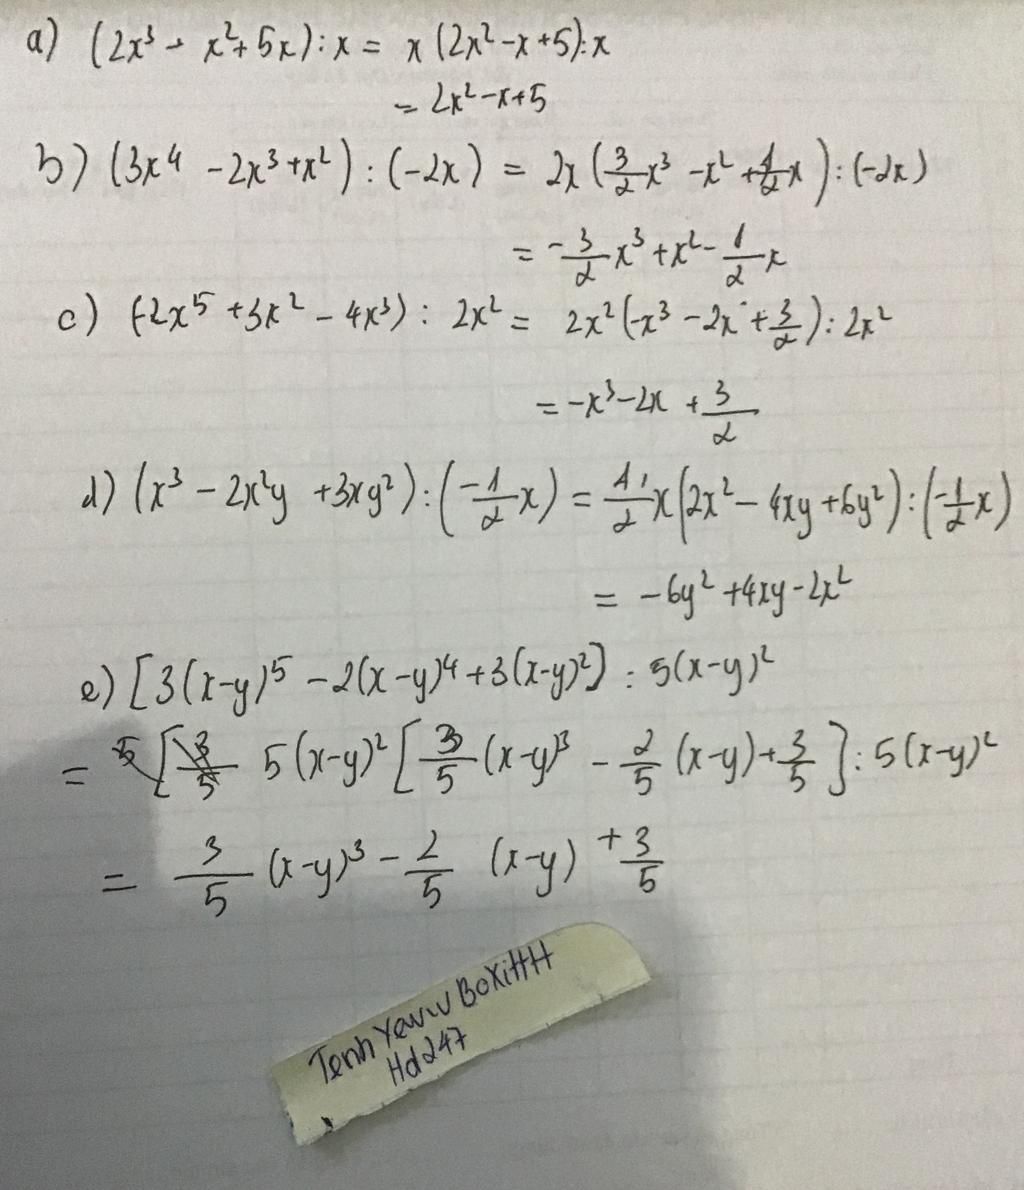 a) (2x³ - x² + 5x) : x = x (2x² - x + 5) : x
= 2x² - x + 5
b) (3x⁴ - 2x³ + x²) : (-2x) = 2x (3/2 x³ - x² + 1/2 x) : (-2x)
= -3/2 x³ + x² - 1/2 x
c) (-2x⁵ + 3x² - 4x³) : 2x² = 2x² (-x³ - 2x + 3/2) : 2x²
= -x³ - 2x + 3/2
d) (x³ - 2x²y + 3xy²) : (-1/2 x) = 1/2 x (2x² - 4xy + 6y²) : (-1/2 x)
= -6y² + 4xy - 2x²
e) [3(x-y)⁵ - 2(x-y)⁴ + 3(x-y)²] : 5(x-y)²
= 5(x-y)² [3/5 (x-y)³ - 2/5 (x-y) + 3/5] : 5(x-y)²
= 3/5 (x-y)³ - 2/5 (x-y) + 3/5
Hd247